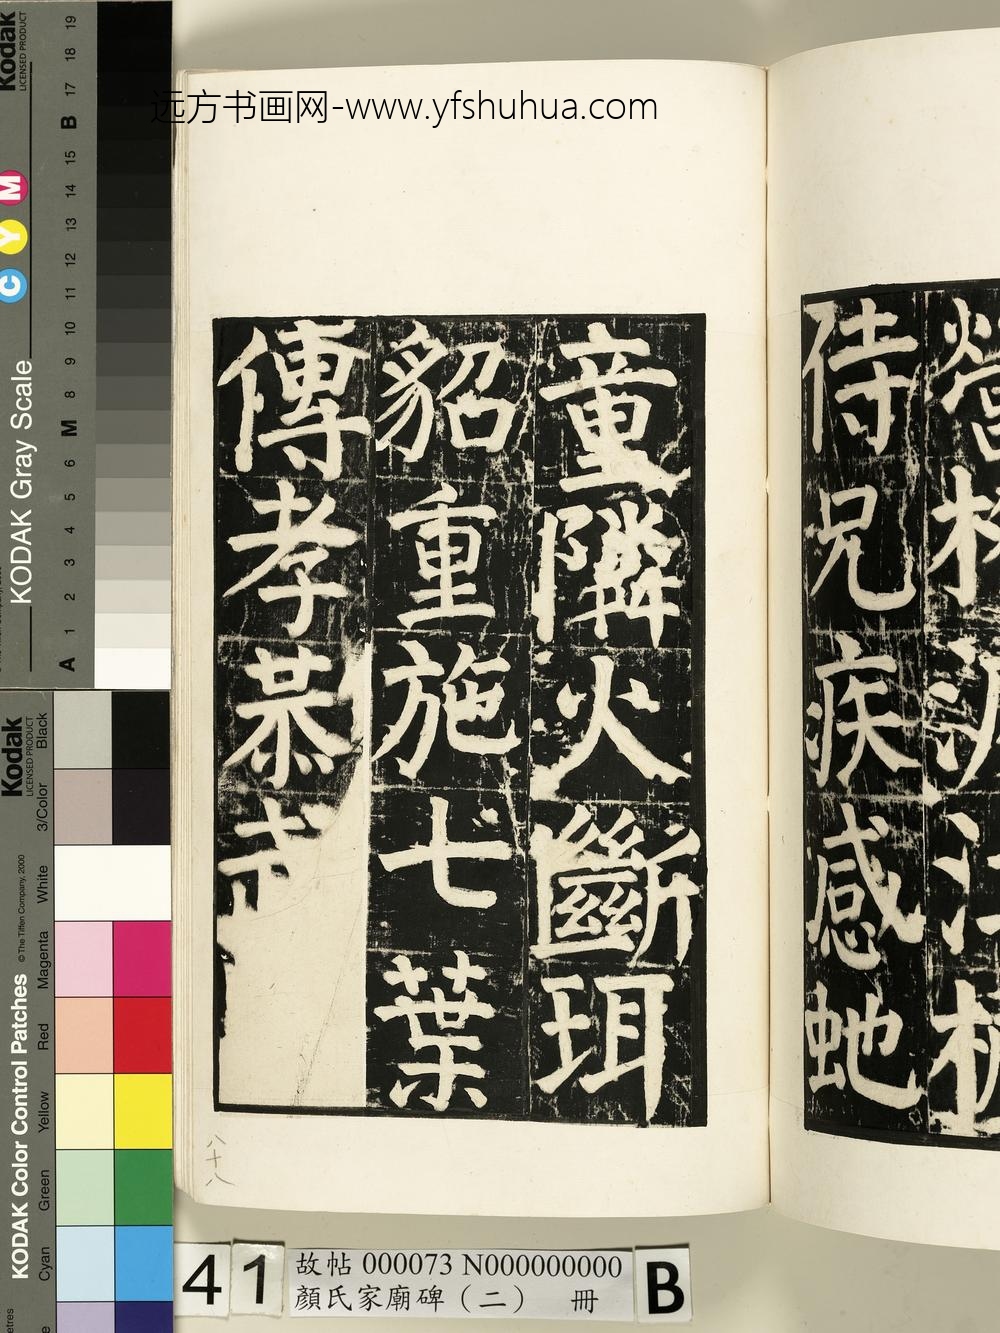 远方书画网-www.yfshuhua.com
侍兄疾感虵
童隣火斷珥
貂重施七葉
傳孝恭
八十八
41
故帖 000073 N000000000
顏氏家廟碑（二） 冊
B
Kodak
LICENSED PRODUCT
KODAK Gray Scale
C Y M
A 1 2 3 4 5 6 M 8 9 10 11 12 13 14 15 B 17 18 19
Kodak
LICENSED PRODUCT
KODAK Color Control Patches
© The Tiffen Company, 2000
Cyan Green Yellow Red Magenta White 3/Color Black